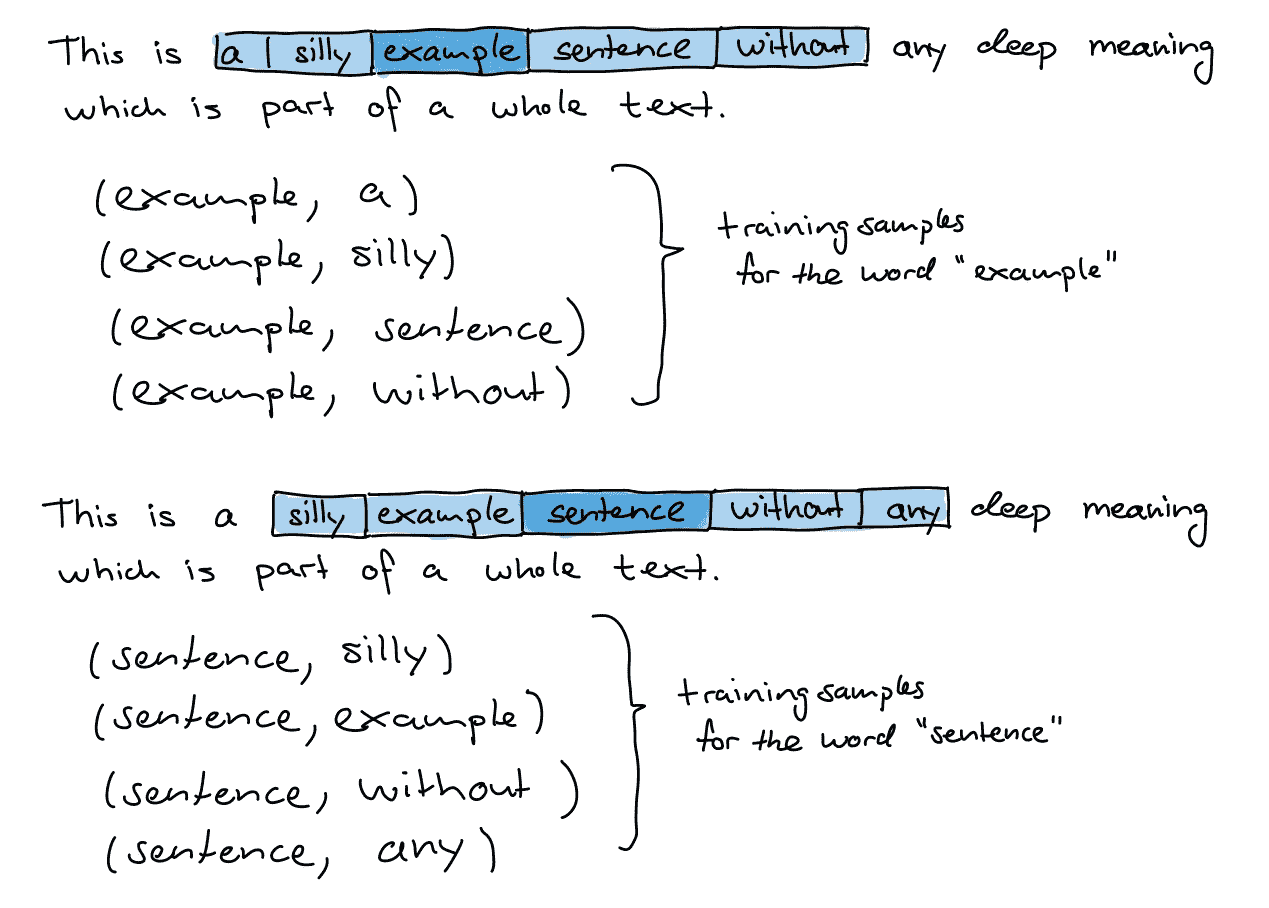 This is a silly example sentence without any deep meaning
which is part of a whole text.
(example, a)
(example, silly)
(example, sentence)
(example, without)
training samples
for the word "example"
This is a silly example sentence without any deep meaning
which is part of a whole text.
(sentence, silly)
(sentence, example)
(sentence, without)
(sentence, any)
training samples
for the word "sentence"